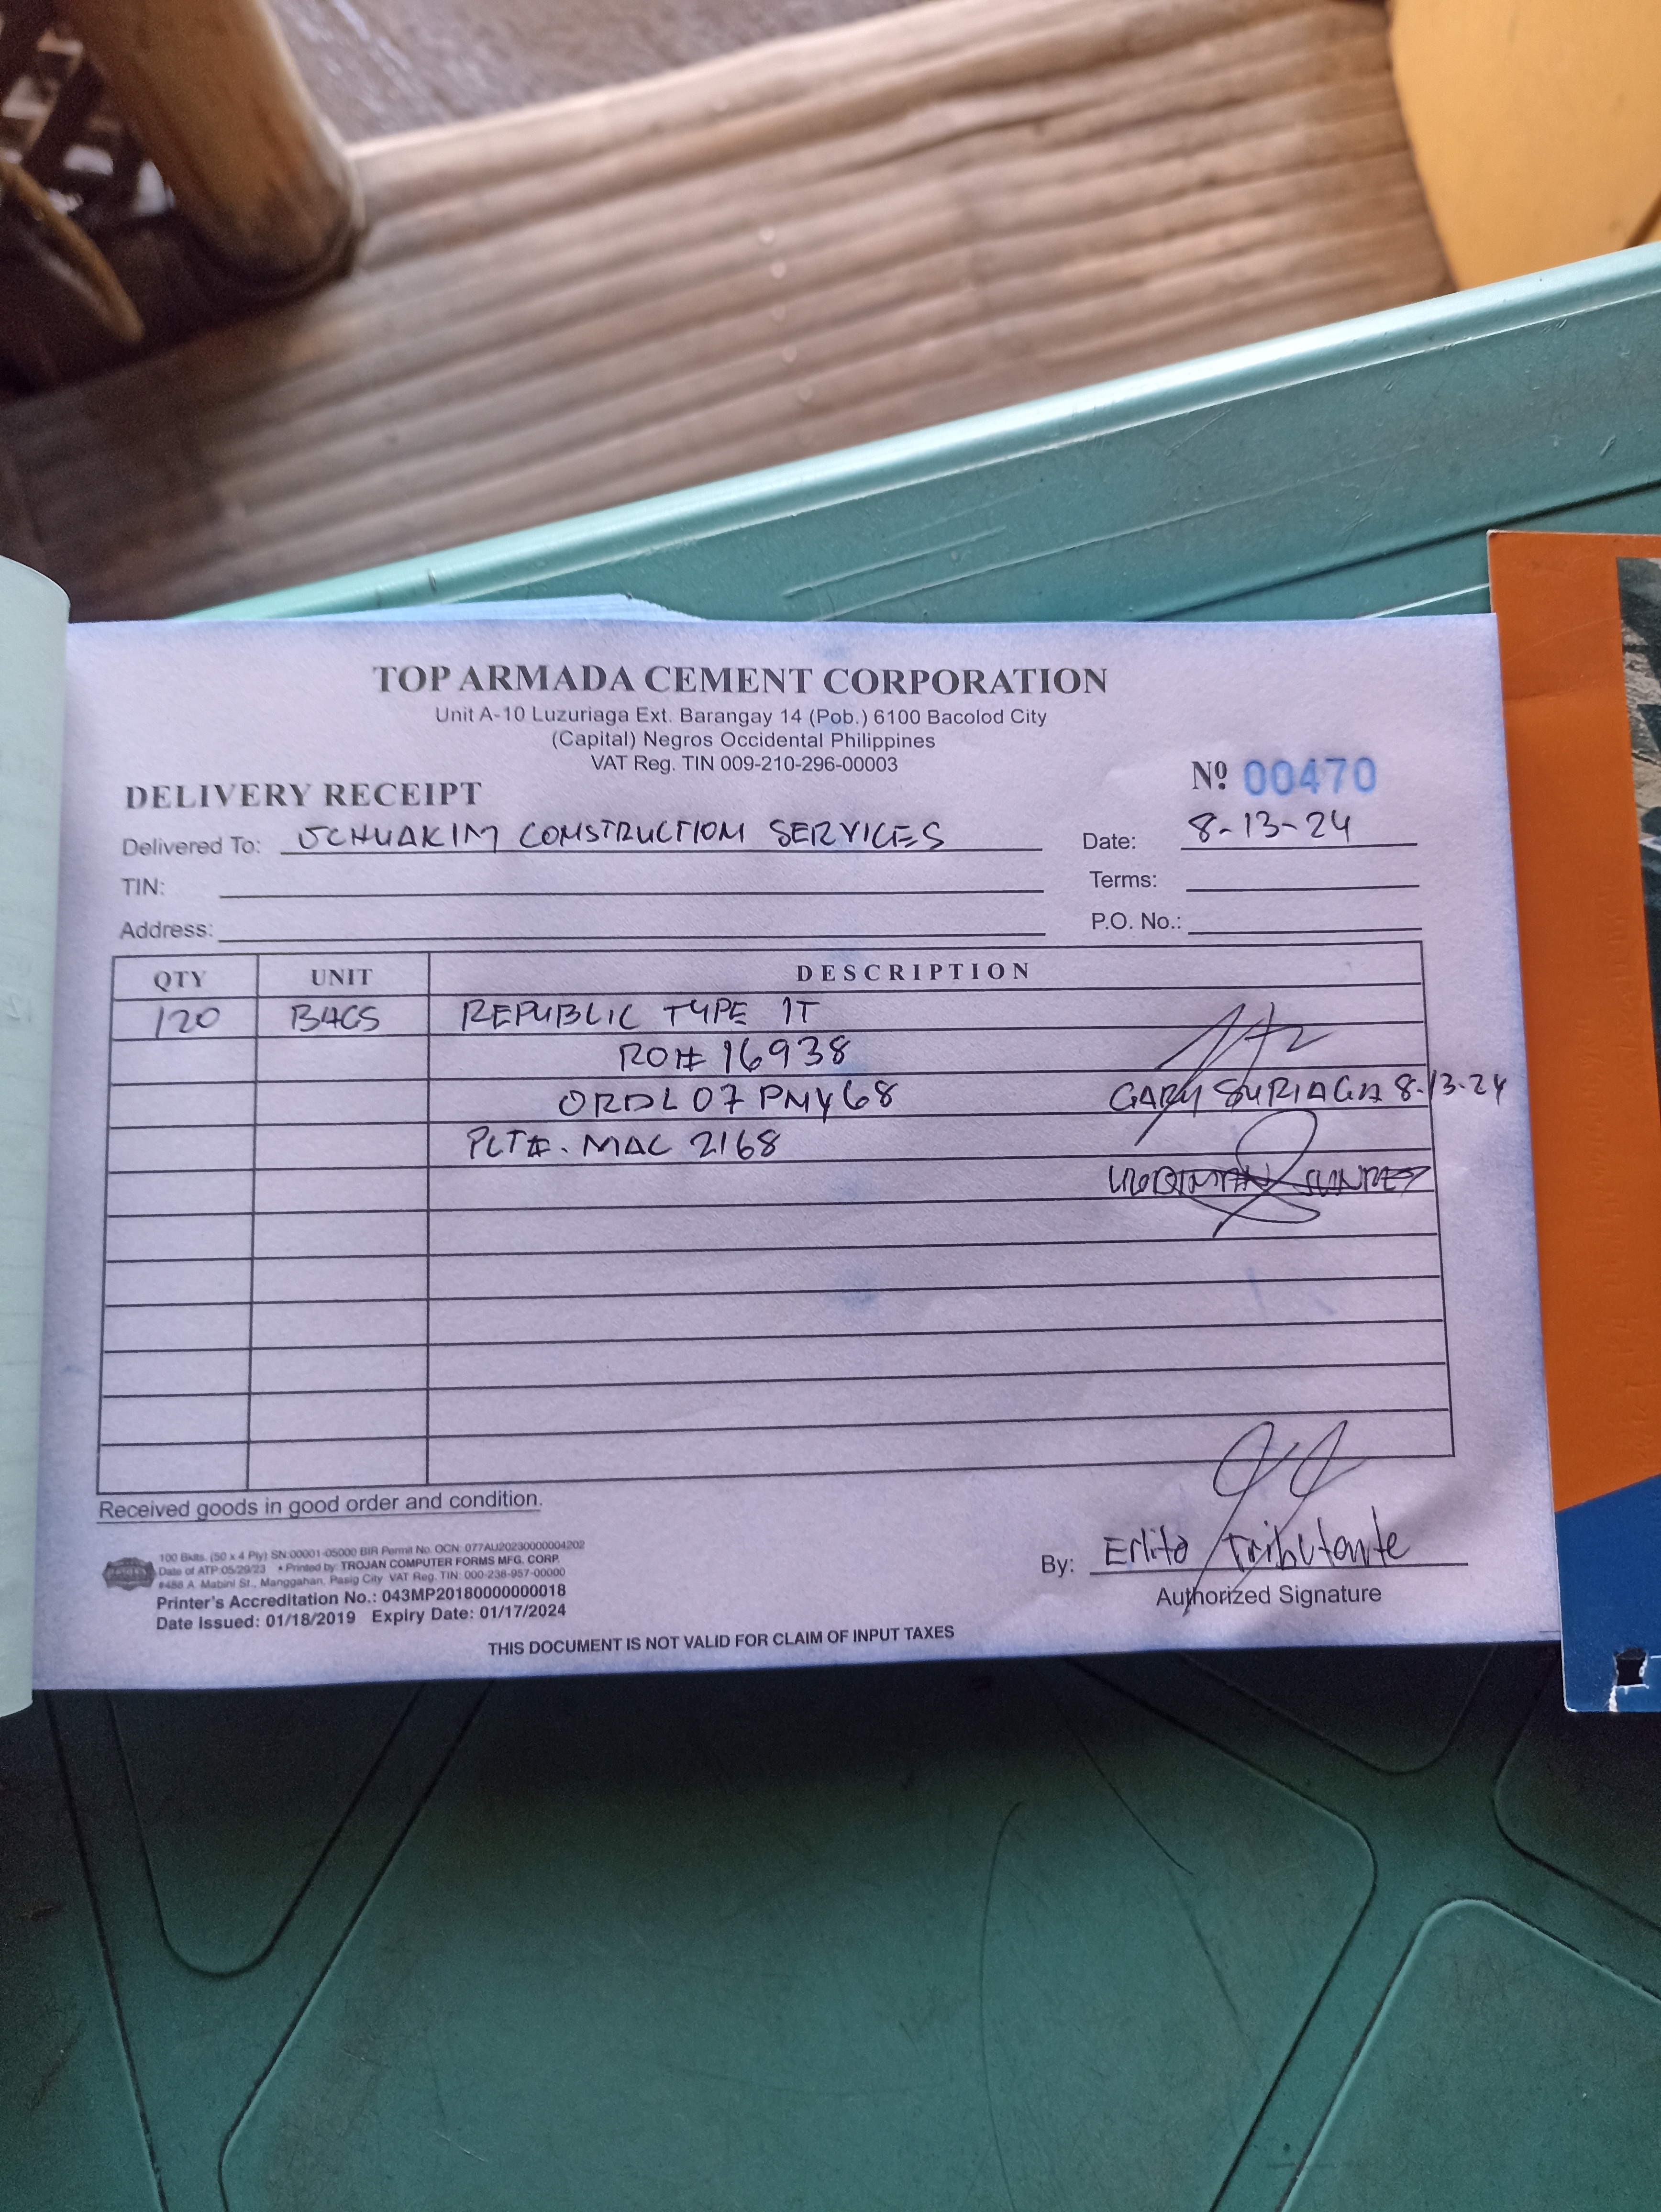 TOP ARMADA CEMENT CORPORATION
Unit A-10 Luzuriaga Ext. Barangay 14 (Pob.) 6100 Bacolod City
(Capital) Negros Occidental Philippines
VAT Reg. TIN 009-210-296-00003
DELIVERY RECEIPT
Nº 00470
Delivered To: JCHUAKIM CONSTRUCTION SERVICES
Date: 8-13-24
TIN:
Terms:
Address:
P.O. No.:
QTY UNIT DESCRIPTION
120 BAGS REPUBLIC TYPE 1T
RO# 16938
ORDL07PMY68
GARY SURIAGA 8-13-24
PLT#. MAC 2168
Received goods in good order and condition.
100 Bklts. (50 x 4 Ply) SN:00001-05000 BIR Permit No. OCN: 077AU20230000004202
Date of ATP:05/29/23 * Printed by: TROJAN COMPUTER FORMS MFG. CORP.
#488 A. Mabini St., Manggahan, Pasig City VAT Reg. TIN: 000-238-957-00000
Printer's Accreditation No.: 043MP20180000000018
Date Issued: 01/18/2019 Expiry Date: 01/17/2024
By: Erlito Tributante
Authorized Signature
THIS DOCUMENT IS NOT VALID FOR CLAIM OF INPUT TAXES